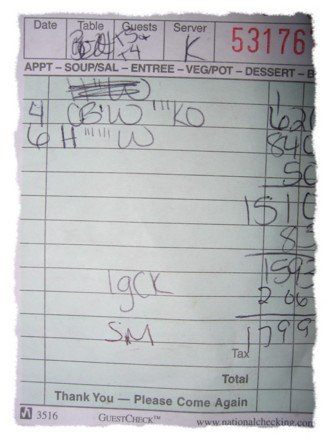 Date Table Guests Server 53176
K
APPT – SOUP/SAL – ENTREE – VEG/POT – DESSERT – B
4 CB W KO 620
6 H W 840
50
1510
83
1593
lg CK 206
SM 1799
Tax
Total
Thank You — Please Come Again
3516 GUESTCHECK™ www.nationalchecking.com